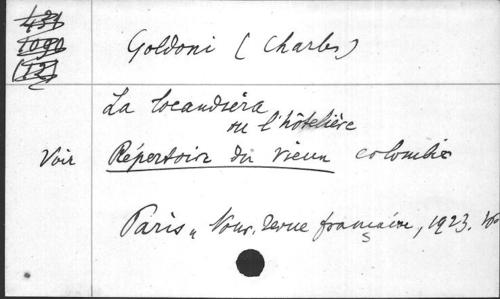 Goldoni (Charles)
La locandiéra
ou l'hôtelière
Voir Répertoire du vieux colombier
Paris, Nouv. revue française, 1923.